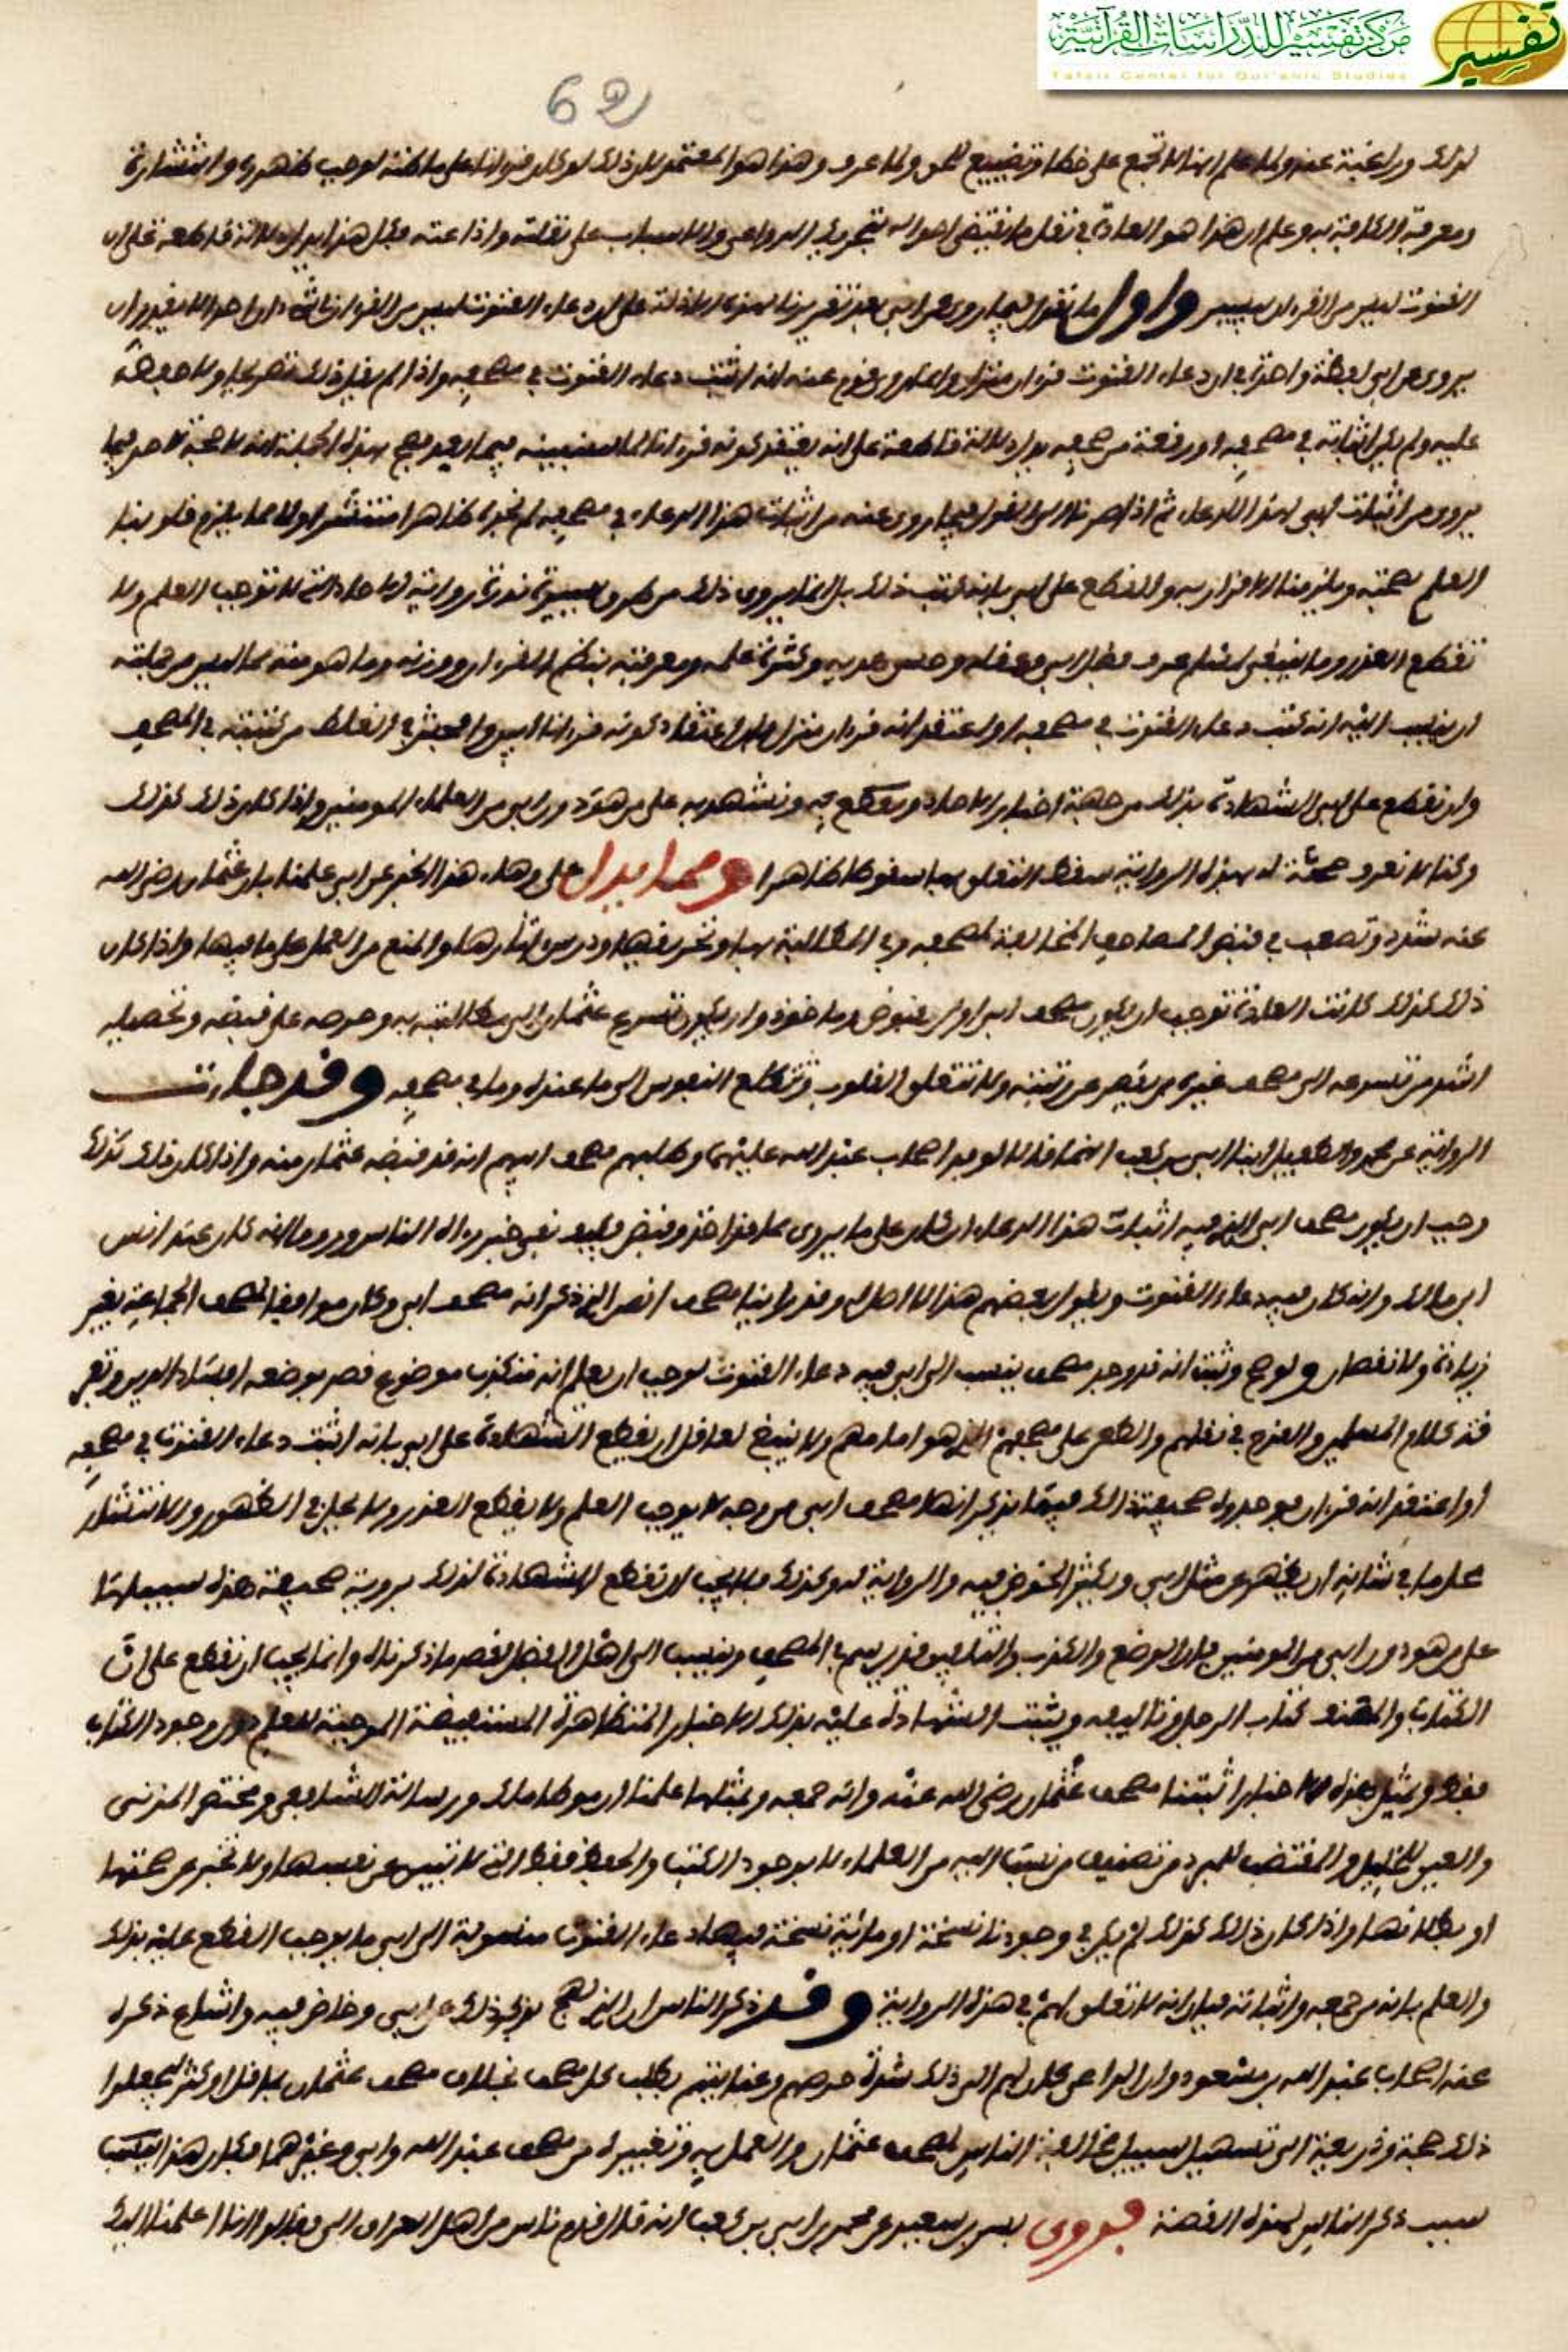 مركز تفسير للدراسات القرآنية
Tafsir Center for Qur'anic Studies
تفسير
62
لذلك ورغبة عنه ولما علم انها لا تجمع على خطا وتضييع لحق ولما عرف وهذا هو المعتمد لان ذلك لو كان قرانا على ما ظنه لوجب ظهوره وانتشاره
ومعرفة الكافة به وعلم ان هذا هو العادة في نقل ما تقتضي احواله تتحرك الدواعي والاسباب على نقله واذاعته فكل هذا يدل دلالة قاطعة على ان
القنوت ليس من القرءان بسبيل واول ما نقول فيما روي عن ابي بعد تقريرنا لهذه الادلة على ان دعاء القنوت ليس من القران انه احدا لا يقدر ان
يروي عن ابي لفظة واحدة في ان دعاء القنوت قران منزل وانما روى قوم عنه انه اثبت دعاء القنوت في مصحفه واذا لم يقل ذلك تصريحا ولا حفظه
عليه ولم يكن اثباته في مصحفه او رقعة من مصحفه يدل دلالة قاطعة على انه يعتقد كونه قرانا لما سنبينه فيما بعد صح بهذه الجملة انه لا حجة لاحد فيما
يروى من اثبات ابي لهذا الدعاء ثم اذا صرنا الى القول فيما روي عنه من اثبات هذا الدعاء في مصحفه لم نجده ظاهرا منتشرا ولا مما يلزم قلوبنا
العلم بصحته ويلزمنا الاقرار به والقطع على ابي بانه كتب ذلك بل انما يروى ذلك من طرق يسيرة نزرة رواية الاحاد التي لا توجب العلم ولا
تقطع العذر وما ينبغي لمسلم عرف فضل ابي وعقله وحسن هديه وكثرة علمه ومعرفته بنظم القرءان ووزنه وما هو منه مما ليس من جملته
ان ينسب اليه انه كتب دعاء القنوت في مصحفه او اعتقد انه قرءان منزل فان اعتقاد كونه قرءانا ابين وافحش في الغلط من كتبه في المصحف
وان نقطع على ابي الشهادة بذلك من جهة اخبار الاحاد ونقطع به ونشهد به على من هو دون ابي من العلماء المومنين واذا كان ذلك كذلك
وكنا لا نعرف صحة هذه الرواية سقط التعلق بها سقوطا ظاهرا ومما يدل على وهاء هذا الخبر عن ابي علمنا بان عثمان رضي الله
عنه شدد وتصعب في قبض المصاحف المخالفة لمصحفه وفي المطالبة بها وتحريقها ودرس اثارها والمنع من العمل على ما فيها واذا كان
ذلك كذلك كانت العادة توجب ان يكون مصحف ابي اول مقبوض وماخوذ وان يكون تسرع عثمان الى مطالبته به وحرصه على قبضه وتحصيله
اشد من تسرعه الى مصحف غيره ممن يقصر عن رتبته ولا تتعلق القلوب وتتطلع النفوس الى ما عنده وما في مصحفه وقد جاءت
الرواية عن محمد والطفيل ابنا ابي بن كعب انهما قالا لوفد اصحاب عبد الله عليهما وطلبهم مصحف ابيهم انه قد قبضه عثمان منه واذا كان ذلك كذلك
وجب ان يكون مصحف ابي الذي فيه اثبات هذا الدعاء ان كان على ما يروى مما قد اخذ وقبض فكيف بقي خبره الى الناس ورووا انه كان عند انس
ابن مالك وانه كان فيه دعاء القنوت ويقول بعضهم هذا لا اصل له وقد راينا مصحف انس الذي ذكر انه مصحف ابي وكان موافقا لمصحف الجماعة بغير
زيادة ولا نقصان ولو صح وثبت انه قد وجد مصحف ينسب الى ابي فيه دعاء القنوت لوجب ان يعلم انه متكذب موضوع قصد بوضعه افساد الدين وتفريق
كلام المسلمين والقدح في نقلهم والطعن على مصحفهم الذي هو امامهم ولا ينبغي لعاقل ان يقطع الشهادة على ابي بانه اثبت دعاء القنوت في مصحفه
او اعتقد انه قرءان بوجود صحيفة ذلك فيها يذكر انها مصحف ابي من وجه لا يوجب العلم ولا يقطع العذر ولا يحل في الظهور والانتشار
محل ما في شانه ان يظهر عن مثل ابي ويكثر الخوض فيه والرواية له وكذلك فلا يجب ان نقطع الشهادة لذلك بروية صحيفة هذه سبيلها
على من هو دون ابي من المومنين فان الوضع والكذب والتلبيس قد يرسم في المصحف وينسب الى اهل الفضل لقصد ما ذكرناه وانما يجب ان نقطع على ان
الكتاب والمصنف كتاب الرجل وتاليفه ويثبت الشهادة عليه بذلك الاخبار المتظاهرة المستفيضة الموجبة للعلم دون وجود الكتاب
فقط وبمثل هذه الاخبار اثبتنا مصحف عثمان رضي الله عنه وانه جمعه وبمثلها علمنا ان موطا مالك ورسالة الشافعي ومختصر المزني
والعين للخليل والمقتضب للمبرد من تصنيف من نسب اليه من العلماء لا بوجود الكتب والخط فقط التي لا تنبي عن نفسها ولا تخبر عن صحتها
او بطلانها واذا كان ذلك كذلك لم يكن في وجودنا نسخة او مائة نسخة فيها دعاء القنوت منسوبة الى ابي ما يوجب القطع عليه بذلك
والعلم بانه من جمعه واثباته فبان انه لا تعلق لهم في هذه الرواية وقد ذكر الناس ان الذي لهج بذكر ذلك عن ابي وخاض فيه واشاع ذكره
عنه اصحاب عبد الله بن مسعود وان الداعي كان لهم الى ذلك شدة حرصهم وعنايتهم بطلب كل مصحف يخالف مصحف عثمان بما قل او كثر ليجعلوا
ذلك حجة وذريعة الى تسهيل سبيل مخالفة الناس لمصحف عثمان والعمل به وتغييره من مصحف عبد الله وابي وغيرهما فكان هذا السبب
سبب ذكر الناس لهذه القصة فروى بسر بن سعيد عن محمد بن ابي بن كعب انه قال قدم ناس من اهل العراق الي فقالوا انا اعلمنا اليك